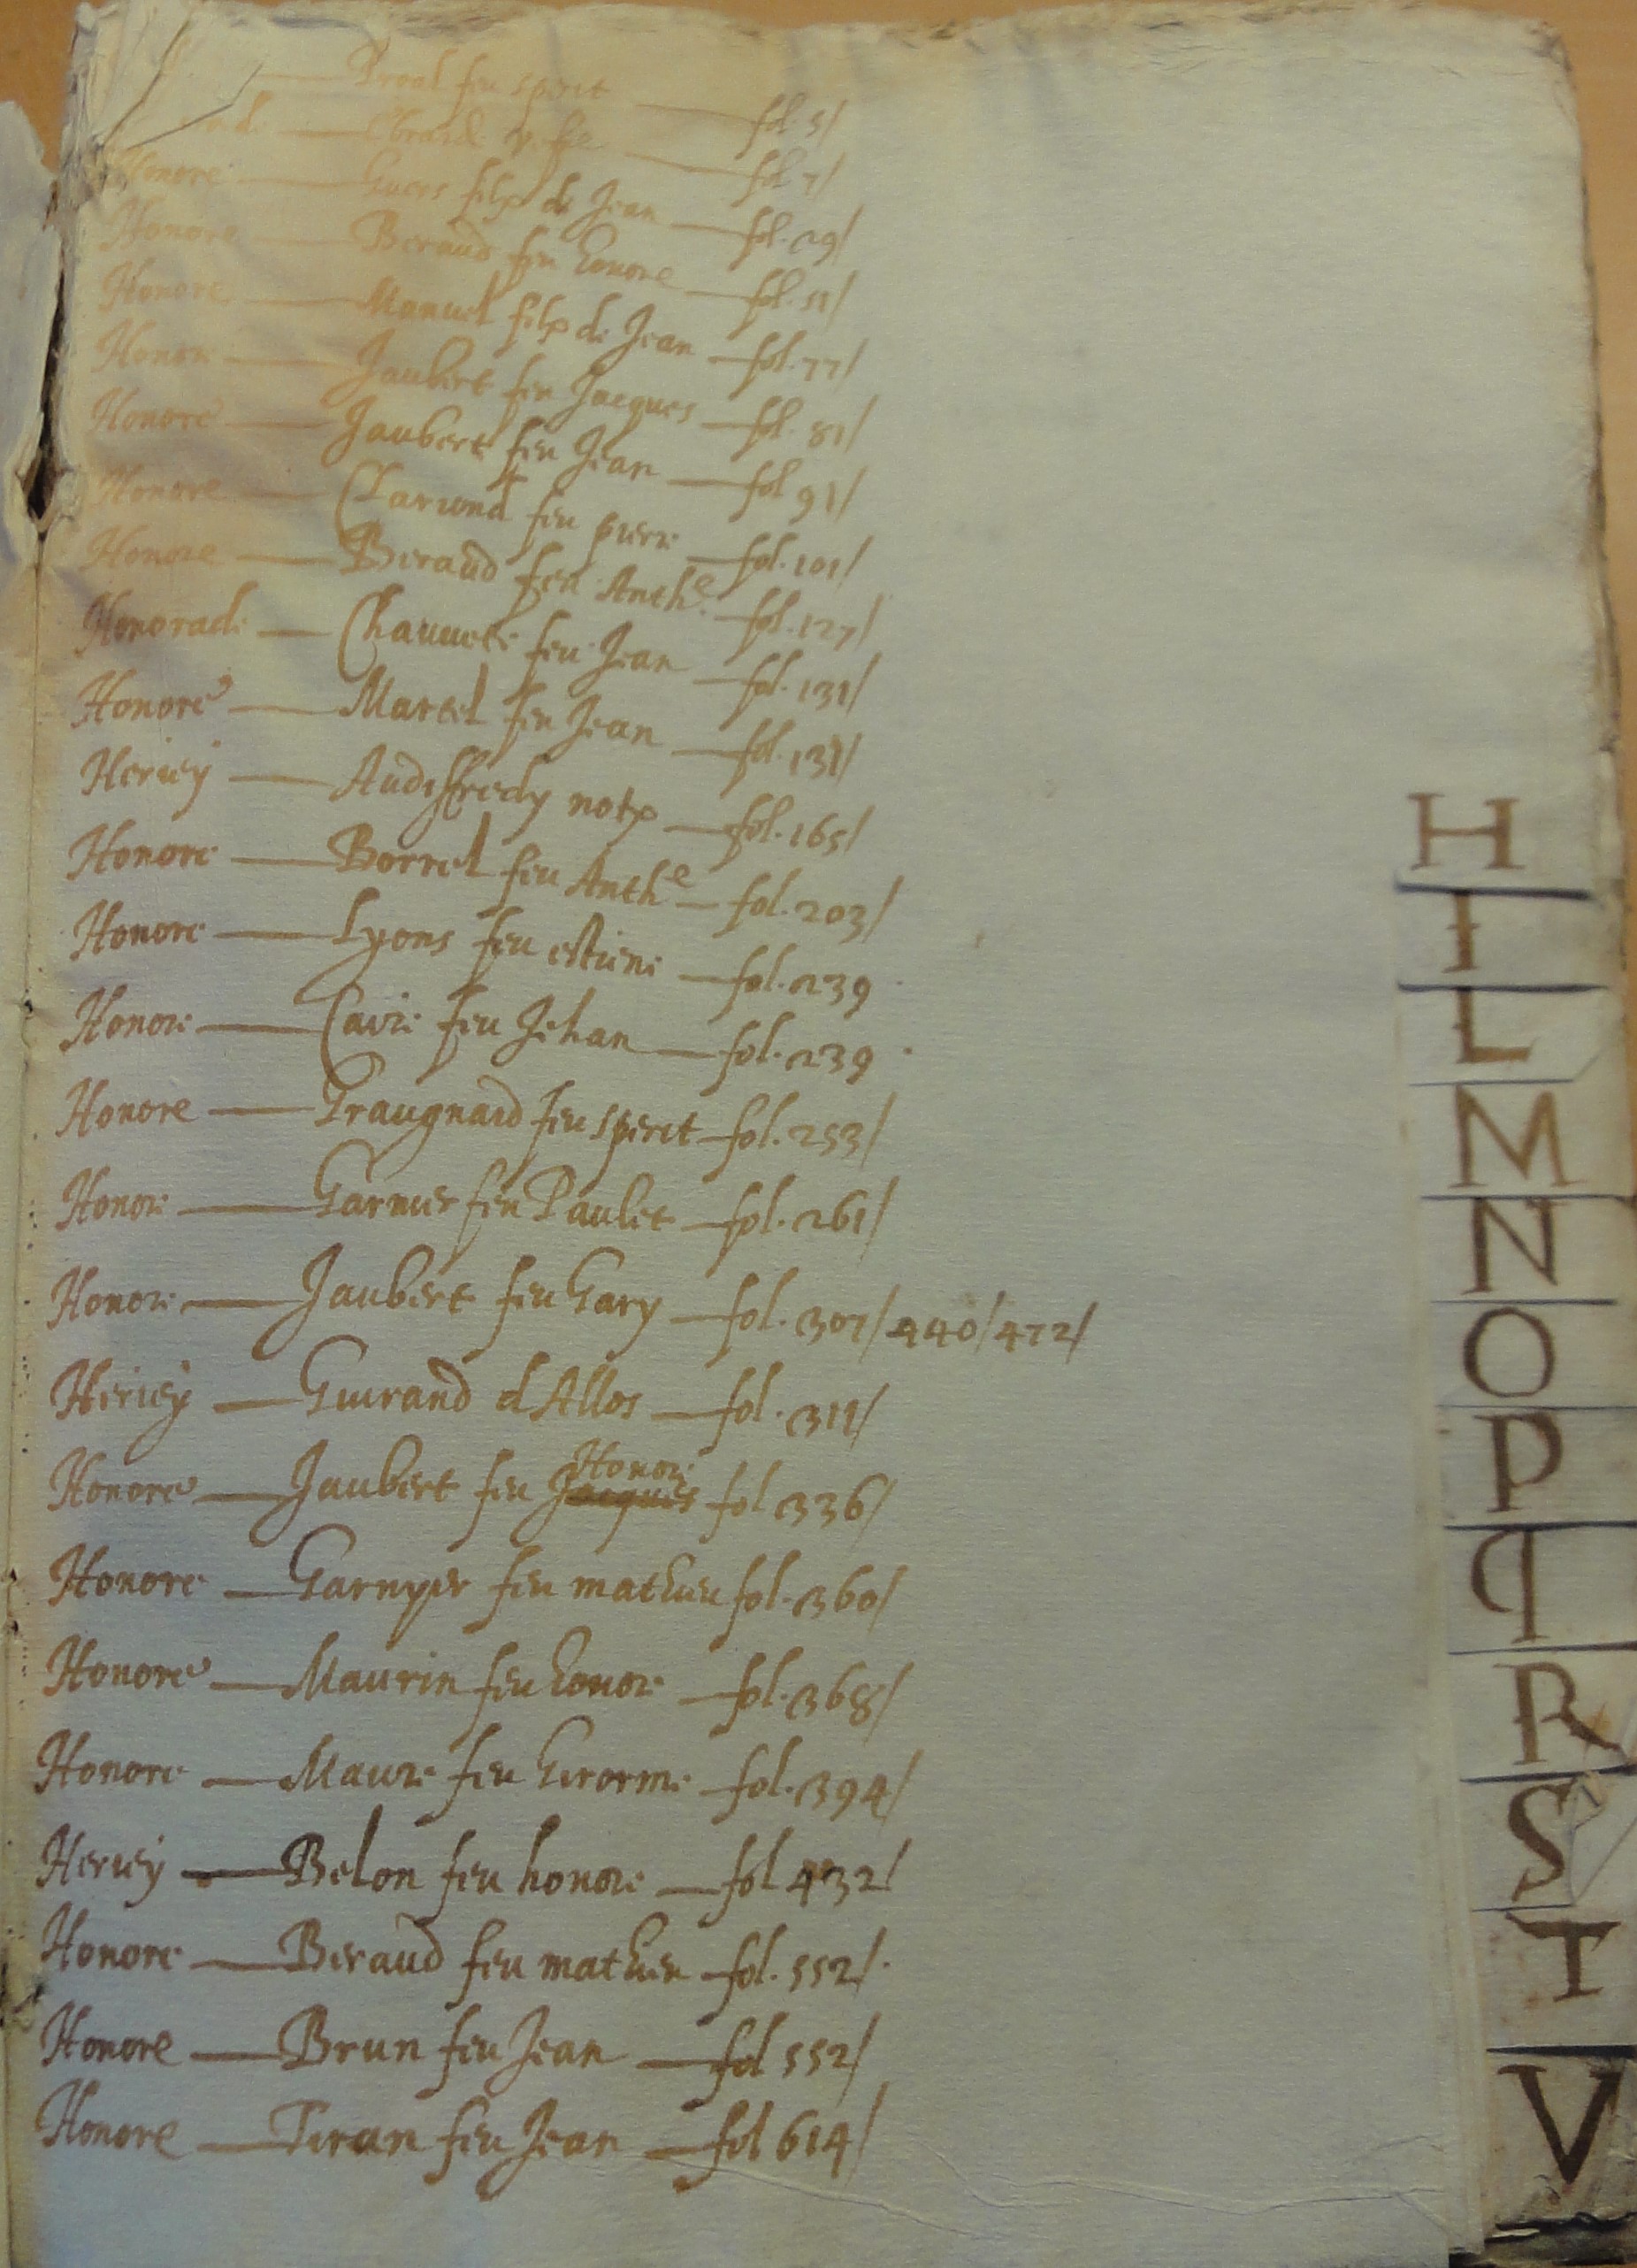 Proal feu sperit fol. 5/
fol 7/
Honore Guers filz de Jean fol. 29/
Honore Beraud feu honore fol. 51/
Honore Manuel filz de Jean fol. 77/
Honore Jaubert feu Jacques fol. 81/
Honore Jaubert feu Jean fol 91/
Honore Clariond feu piere fol. 101/
Honore Beraud feu Anthe fol. 127/
Honorade Chauvete feu Jean fol. 131/
Honore Martel feu Jean fol. 131/
Hervey Audiffredy notr fol. 165/
Honore Borrel feu Anthe fol. 203/
Honore Lyons feu estiene fol. 239
Honore Caire feu Jehan fol. 239
Honore Graugnard feu sperit fol. 253/
Honore Garnier feu Paulet fol. 261/
Honore Jaubert feu hary fol. 307/ 440/ 472/
Hervey Guirand d Allos fol. 311/
Honore Jaubert feu Jacques Honore fol 336/
Honore Garnyer feu mathieu fol. 360/
Honore Maurin feu honore fol. 368/
Honore Maure feu hierome fol. 394/
Hervey Belon feu honore fol 432/
Honore Beraud feu mathieu fol. 552/
Honore Brun feu Jean fol 552/
Honore Tiran feu Jean fol 614/
H
I
L
M
N
O
P
q
R
S
T
V